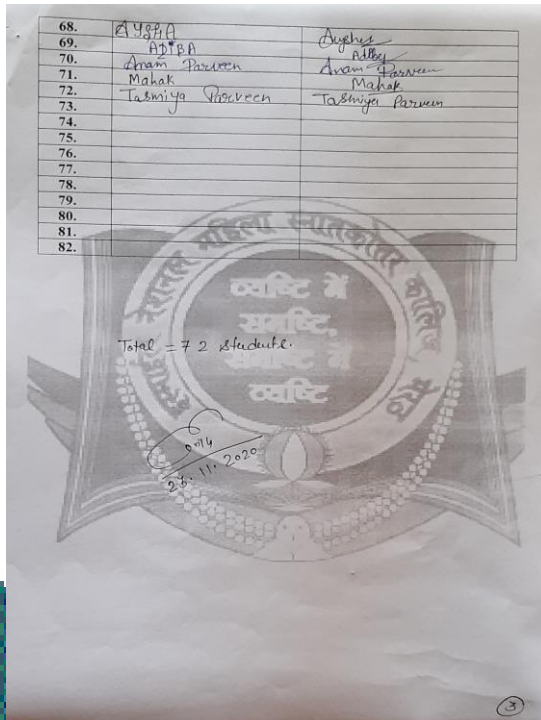 68. AYSHA Ayshes
69. ADIBA Adiba
70. Anam Parveen Anam Parveen
71. Mahak Mahak
72. Tasmiya Parveen Tasmiya Parveen
73.
74.
75.
76.
77.
78.
79.
80.
81.
82.
नेशनल महिला स्नातकोत्तर कॉलिज, मेरठ
व्यष्टि में
समष्टि,
समष्टि में
व्यष्टि
Total = 72 students.
.11.2020
3